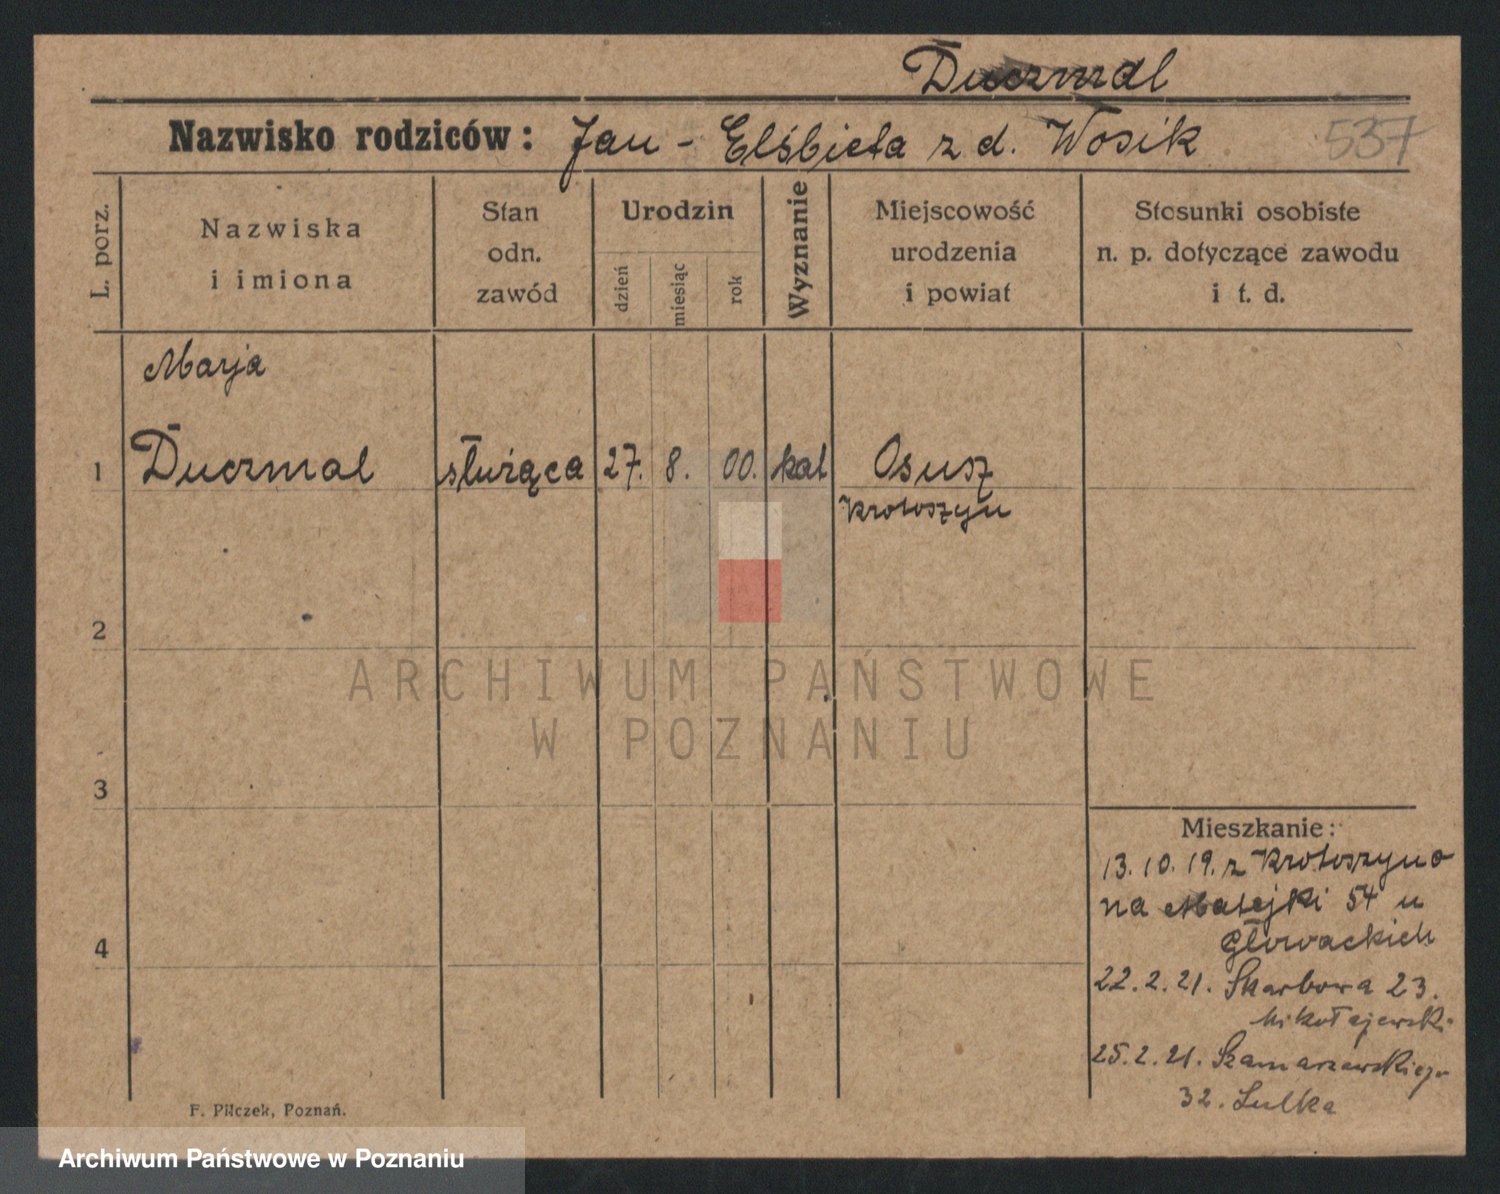 Duczmal
Nazwisko rodziców: Jan - Elśbieta z d. Wosik 537
L. porz.
Nazwiska
i imiona
Stan
odn.
zawód
Urodzin
dzień
miesiąc
rok
Wyznanie
Miejscowość
urodzenia
i powiat
Stosunki osobiste
n. p. dotyczące zawodu
i t. d.
Marja
1 Duczmal służąca 27. 8. 00. kat Osusz
Krotoszyn
2
ARCHIWUM PAŃSTWOWE
W POZNANIU
3
Mieszkanie:
13.10.19. z Krotoszyna
na Matejki 54 u
Głowackich
4
22.2.21. Skarbowa 23.
Mikołajewski
25.2.21. Szamarzewskiego
32. Lulka
F. Pilczek, Poznań.
Archiwum Państwowe w Poznaniu